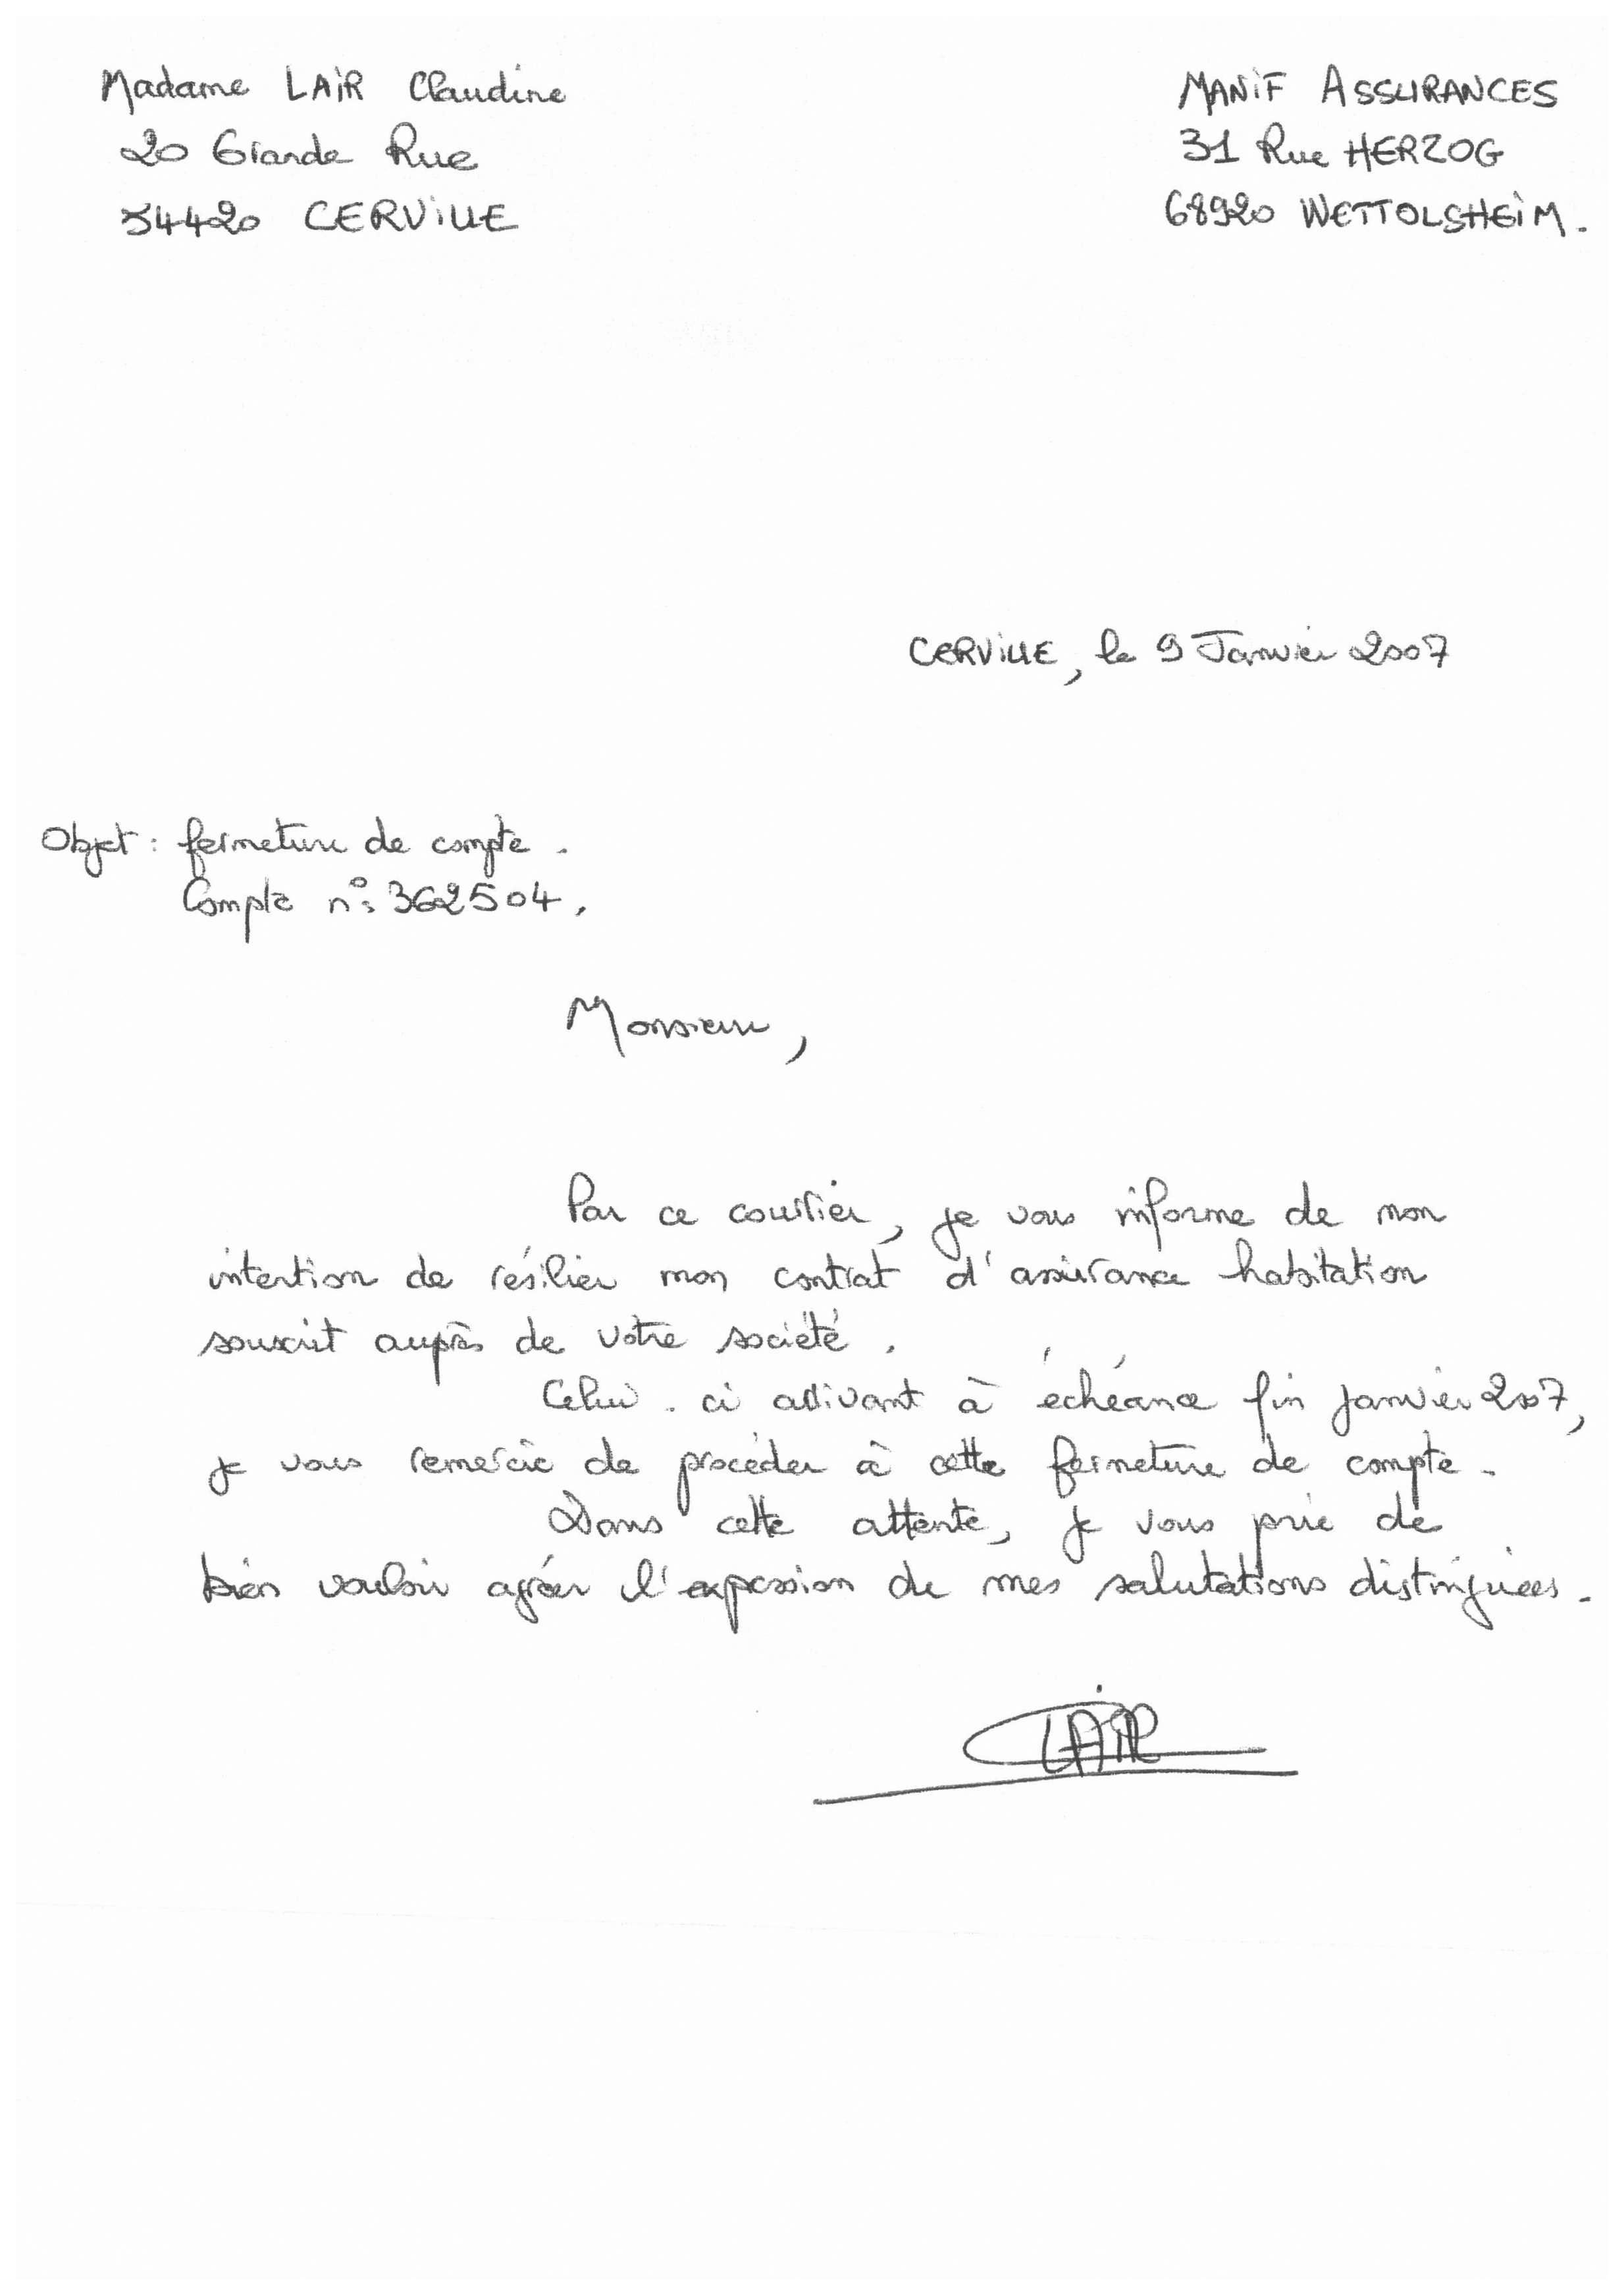 Madame LAIR Claudine
20 Grande Rue
54420 CERVILLE
MANIF ASSURANCES
31 Rue HERZOG
68920 WETTOLSHEIM.
CERVILLE, le 9 Janvier 2007
Objet : fermeture de compte.
Compte n°: 362504.
Monsieur,
Par ce courrier, je vous informe de mon
intention de résilier mon contrat d'assurance habitation
souscrit auprès de votre société.
Celui-ci arrivant à échéance fin janvier 2007,
je vous remercie de procéder à cette fermeture de compte.
Dans cette attente, je vous prie de
bien vouloir agréer l'expession de mes salutations distinguées.
LAIR